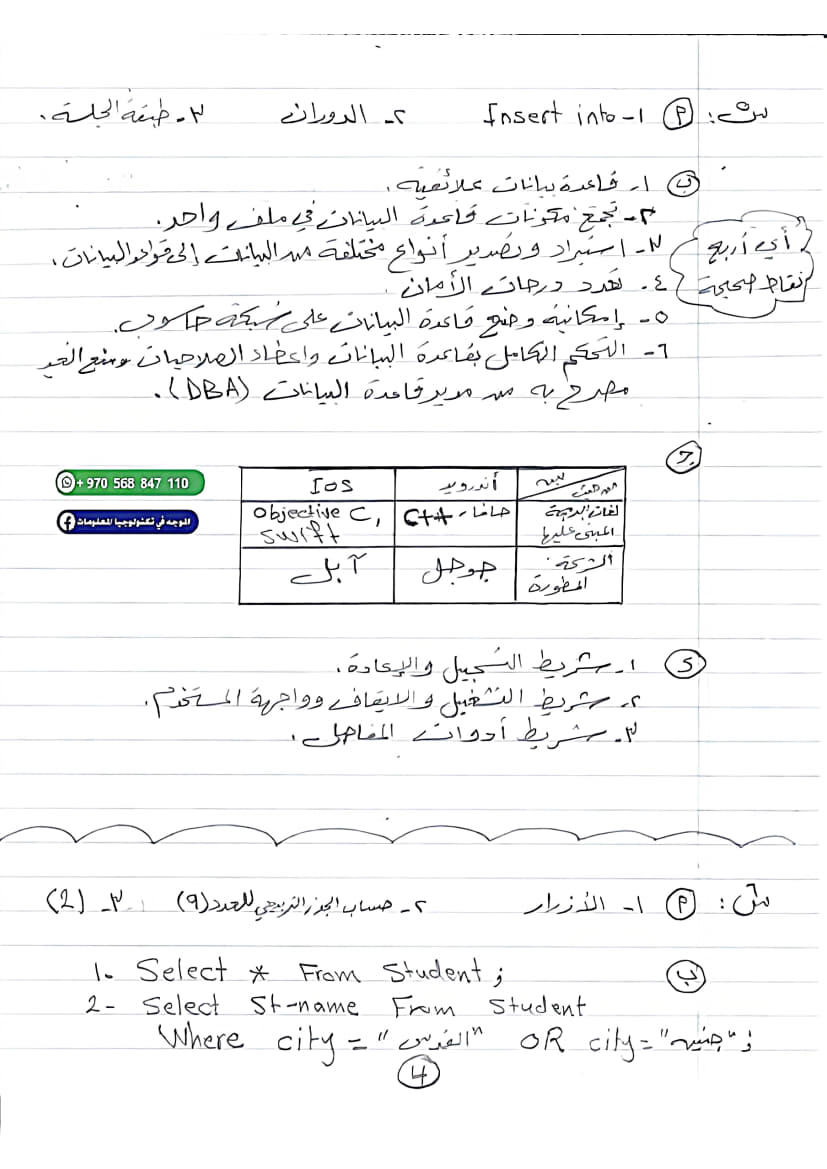 أ ١- Insert into ٢- الدوران ٣- طبقة الجلسة.
ب ١- قاعدة بيانات علائقية.
٢- تجمع مكونات قاعدة البيانات في ملف واحد.
٣- استيراد وتصدير أنواع مختلفة من البيانات إلى قواعد البيانات.
٤- تعدد درجات الأمان.
٥- إمكانية وضع قاعدة البيانات على شبكة حاسوب.
٦- التحكم الكامل بقاعدة البيانات واعطاء الصلاحيات ومنع الغير
مصرح به من مدير قاعدة البيانات (DBA).
أي أربع
نقاط صحيحة
ج
من حيث أندرويد Ios
لغات البرمجة المبني عليها جافا، C++ Objective C, Swift
الشركة المطورة جوجل آبل
+970 568 847 110
الموجه في تكنولوجيا المعلومات
د ١- شريط التسجيل والإعادة.
٢- شريط التشغيل والايقاف وواجهة المستخدم.
٣- شريط أدوات المفاصل.
أ ١- الأزرار ٢- حساب الجذر التربيعي للعدد (٩) ٣- (2)
ب
1- Select * From Student;
2- Select St-name From Student
Where city = "القدس" OR city = "جنين";
4